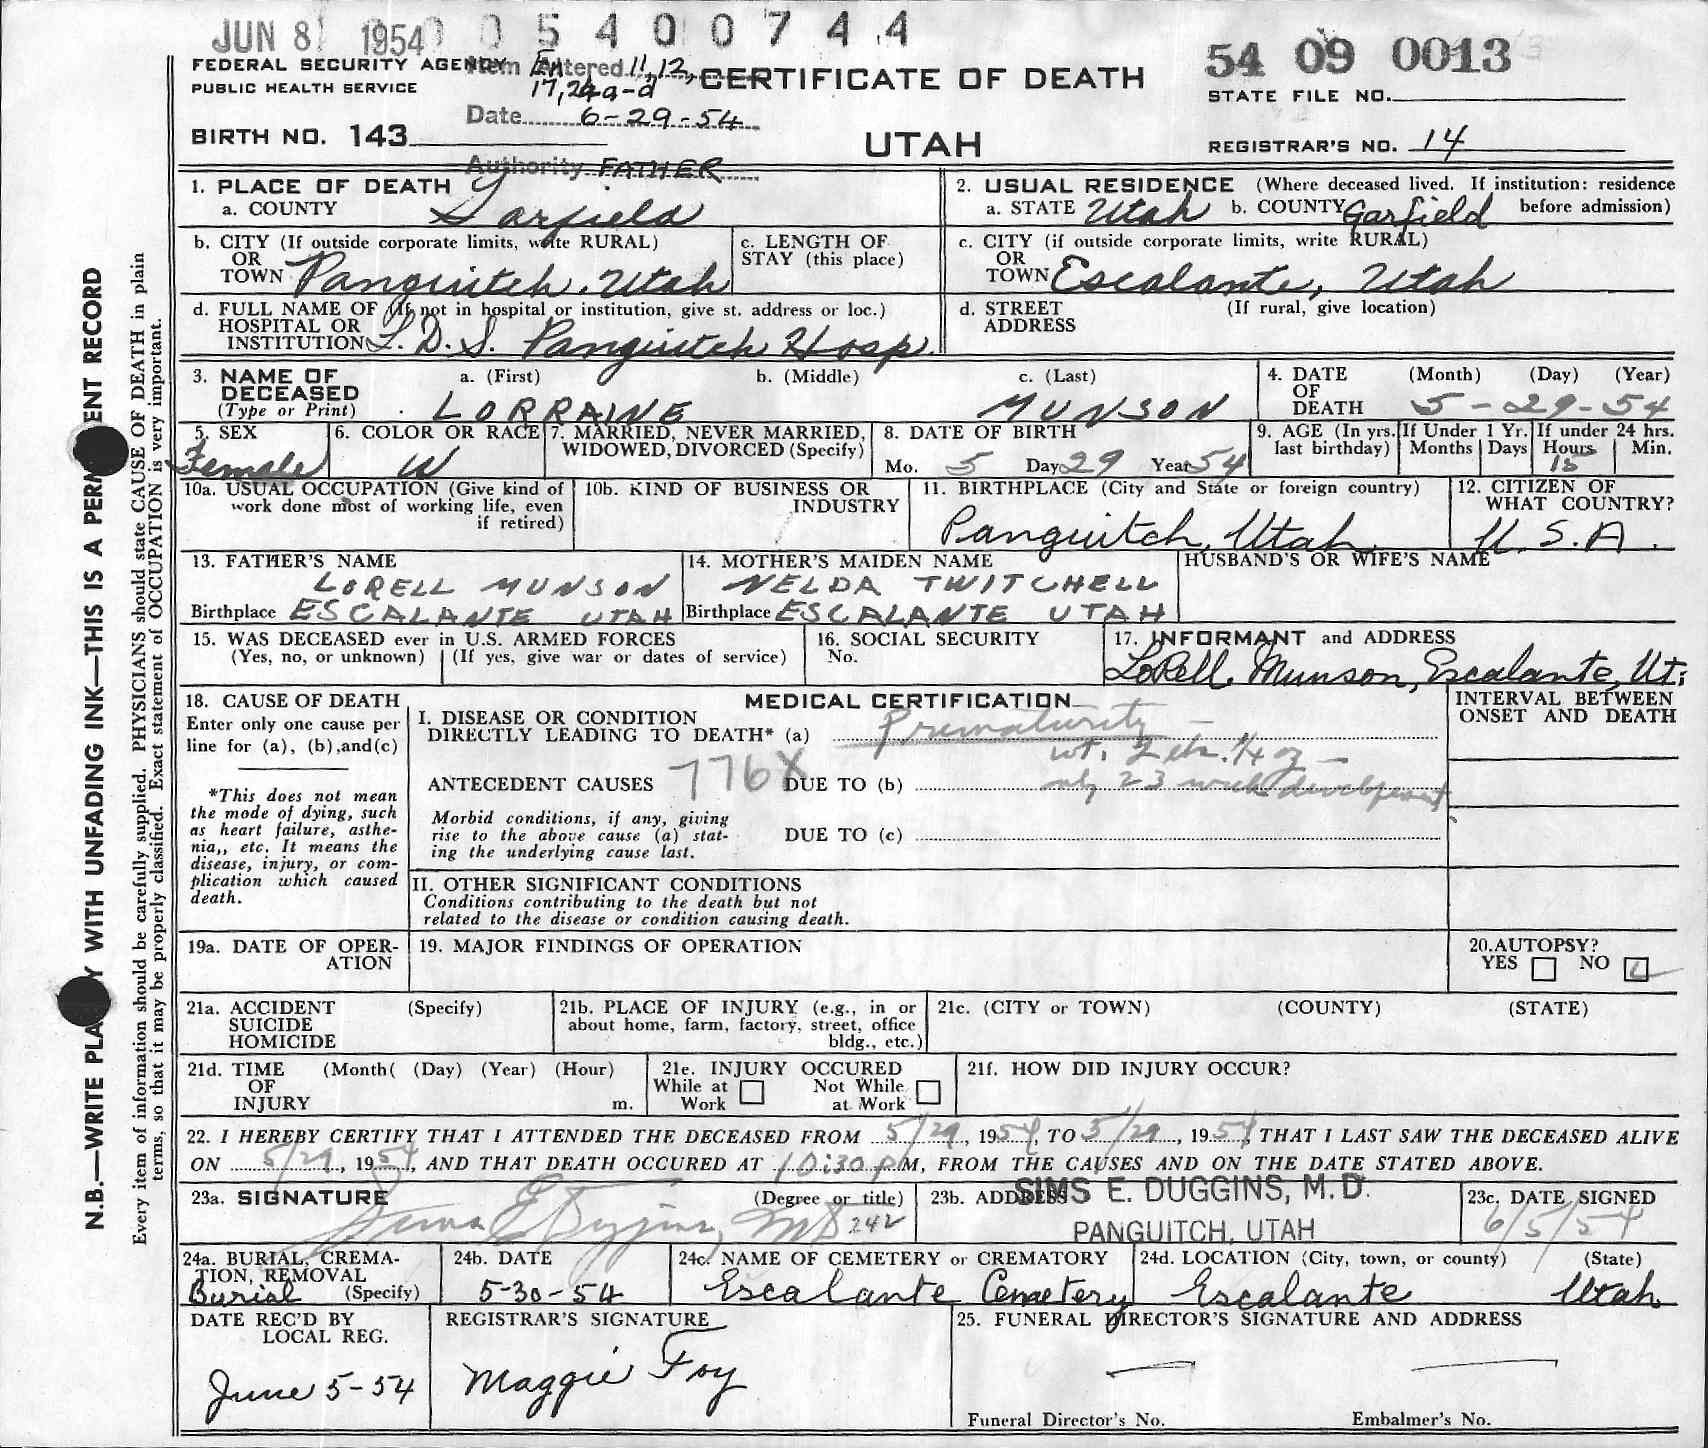 JUN 8 1954 0 5 4 0 0 7 4 4
54 09 0013
FEDERAL SECURITY AGENCY
PUBLIC HEALTH SERVICE
Item Entered 11, 12,
17, 24a-d
Date 6-29-54
Authority FATHER
CERTIFICATE OF DEATH
UTAH
STATE FILE NO.
BIRTH NO. 143
REGISTRAR'S NO. 14
1. PLACE OF DEATH
a. COUNTY Garfield
2. USUAL RESIDENCE (Where deceased lived. If institution: residence before admission)
a. STATE Utah b. COUNTY Garfield
b. CITY (If outside corporate limits, write RURAL)
OR
TOWN Panguitch, Utah
c. LENGTH OF
STAY (this place)
c. CITY (if outside corporate limits, write RURAL)
OR
TOWN Escalante, Utah
d. FULL NAME OF (If not in hospital or institution, give st. address or loc.)
HOSPITAL OR
INSTITUTION L.D.S. Panguitch Hosp.
d. STREET (If rural, give location)
ADDRESS
3. NAME OF
DECEASED
(Type or Print)
a. (First) b. (Middle) c. (Last)
LORRAINE MUNSON
4. DATE (Month) (Day) (Year)
OF
DEATH 5-29-54
5. SEX
Female
6. COLOR OR RACE
W
7. MARRIED, NEVER MARRIED,
WIDOWED, DIVORCED (Specify)
8. DATE OF BIRTH
Mo. 5 Day 29 Year 54
9. AGE (In yrs. last birthday)
If Under 1 Yr.
Months Days
If under 24 hrs.
Hours Min.
15
10a. USUAL OCCUPATION (Give kind of
work done most of working life, even
if retired)
10b. KIND OF BUSINESS OR
INDUSTRY
11. BIRTHPLACE (City and State or foreign country)
Panguitch, Utah
12. CITIZEN OF
WHAT COUNTRY?
U.S.A.
13. FATHER'S NAME
LORELL MUNSON
Birthplace ESCALANTE UTAH
14. MOTHER'S MAIDEN NAME
NELDA TWITCHELL
Birthplace ESCALANTE UTAH
HUSBAND'S OR WIFE'S NAME
15. WAS DECEASED ever in U.S. ARMED FORCES
(Yes, no, or unknown) (If yes, give war or dates of service)
16. SOCIAL SECURITY
No.
17. INFORMANT and ADDRESS
LoRell Munson, Escalante, Ut.
18. CAUSE OF DEATH
Enter only one cause per
line for (a), (b), and (c)
*This does not mean
the mode of dying, such
as heart failure, asthe-
nia,, etc. It means the
disease, injury, or com-
plication which caused
death.
MEDICAL CERTIFICATION
I. DISEASE OR CONDITION
DIRECTLY LEADING TO DEATH* (a) Prematurity -
wt. 2 lbs. 1/4 oz -
ANTECEDENT CAUSES 776X DUE TO (b) only 23 week development
Morbid conditions, if any, giving
rise to the above cause (a) stat-
ing the underlying cause last.
DUE TO (c)
INTERVAL BETWEEN
ONSET AND DEATH
II. OTHER SIGNIFICANT CONDITIONS
Conditions contributing to the death but not
related to the disease or condition causing death.
19a. DATE OF OPER-
ATION
19. MAJOR FINDINGS OF OPERATION
20. AUTOPSY?
YES NO
21a. ACCIDENT (Specify)
SUICIDE
HOMICIDE
21b. PLACE OF INJURY (e.g., in or
about home, farm, factory, street, office
bldg., etc.)
21c. (CITY or TOWN) (COUNTY) (STATE)
21d. TIME (Month( (Day) (Year) (Hour)
OF
INJURY m.
21e. INJURY OCCURED
While at Work Not While at Work
21f. HOW DID INJURY OCCUR?
22. I HEREBY CERTIFY THAT I ATTENDED THE DECEASED FROM 5/29, 1954, TO 5/29, 1954, THAT I LAST SAW THE DECEASED ALIVE
ON 5/29, 1954, AND THAT DEATH OCCURED AT 10:30 P M, FROM THE CAUSES AND ON THE DATE STATED ABOVE.
23a. SIGNATURE (Degree or title)
Sims E Duggins, MD 242
23b. ADDRESS
SIMS E. DUGGINS, M.D.
PANGUITCH, UTAH
23c. DATE SIGNED
6/5/54
24a. BURIAL, CREMA-
TION, REMOVAL
(Specify)
Burial
24b. DATE
5-30-54
24c. NAME OF CEMETERY or CREMATORY
Escalante Cemetery
24d. LOCATION (City, town, or county) (State)
Escalante Utah
DATE REC'D BY
LOCAL REG.
June 5-54
REGISTRAR'S SIGNATURE
Maggie Foy
25. FUNERAL DIRECTOR'S SIGNATURE AND ADDRESS
Funeral Director's No. Embalmer's No.
N.B.—WRITE PLAINLY WITH UNFADING INK—THIS IS A PERMANENT RECORD
Every item of information should be carefully supplied. PHYSICIANS should state CAUSE OF DEATH in plain
terms, so that it may be properly classified. Exact statement of OCCUPATION is very important.